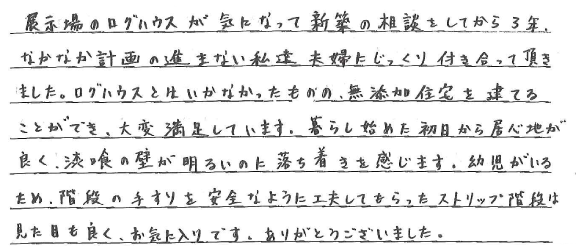 展示場のログハウスが気になって新築の相談をしてから3年、
なかなか計画の進まない私達夫婦にじっくり付き合って頂き
ました。ログハウスとはいかなかったものの、無添加住宅を建てる
ことができ、大変満足しています。暮らし始めた初日から居心地が
良く、漆喰の壁が明るいのに落ち着きを感じます。幼児がいる
ため、階段の手すりを安全なように工夫してもらったストリップ階段は
見た目も良く、お気に入りです。ありがとうございました。